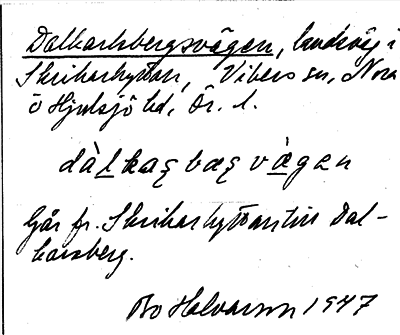 Dalkarlsbergsvägen, landsväg i
Skrikarhyttan, Vikers sn, Nora
o Hjulsjö hd, Ör. l.
dàḷkaꞅbæꞅvägen
Går fr. Skrikarhyttan till Dal-
karsberg.
Bo Halvarson 1947